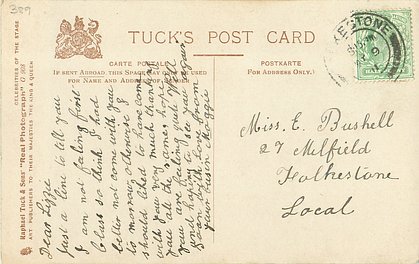 389
TUCK'S POST CARD
CARTE POSTALE
POSTKARTE
IF SENT ABROAD, THIS SPACE MAY BE USED
FOR NAME AND ADDRESS
(FOR ADDRESS ONLY.)
CELEBRITIES OF THE STAGE
Raphael Tuck & Sons' "Real Photograph"
ART PUBLISHERS TO THEIR MAJESTIES THE KING & QUEEN
Dear Lizzie
Just a line to tell you
I am not feeling first
Class so think I had
better not come with you
to morrow, otherwise I
should liked to have come
with you very much thanking
you all the same hope
you are feeling quite well
and hoping to see you
soon with love from
your cousin Maggie
Miss. E. Bushell
27 Milfield
Folkestone
Local